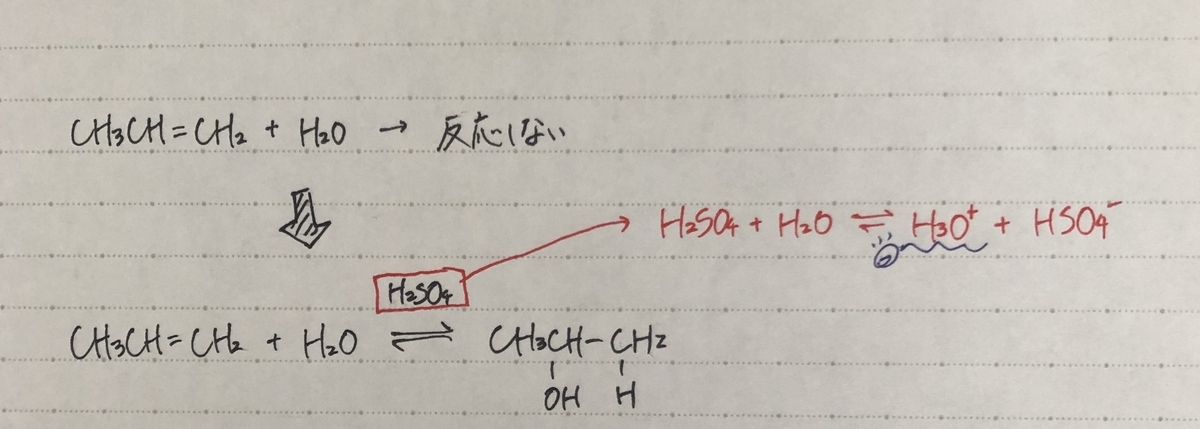 CH3CH=CH2 + H2O → 反応しない
H2SO4 + H2O ⇌ H3O+ + HSO4-
H2SO4
CH3CH=CH2 + H2O ⇌ CH3CH-CH2
OH H